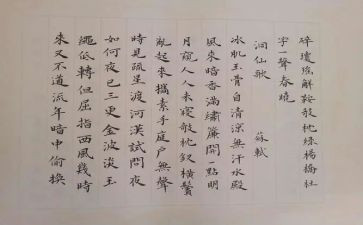 碎瓊瑤解鞍欹枕綠楊橋杜
宇一聲春曉
洞仙歌 蘇軾
冰肌玉骨自清涼無汗水殿
風來暗香滿繡簾開一點明
月窺人人未寢欹枕釵橫鬢
亂起來攜素手庭戶無聲
時見疏星渡河漢試問夜
如何夜已三更金波淡玉
繩低轉但屈指西風幾時
來又不道流年暗中偷換